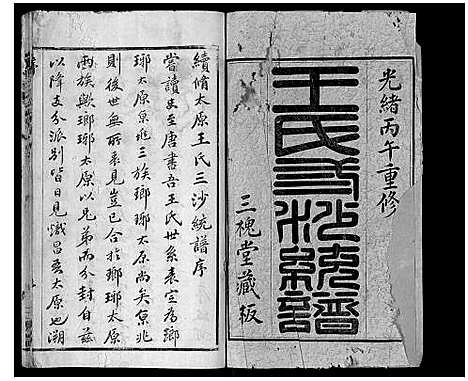 光緒丙午重修
王氏三沙統譜
三槐堂藏板
續脩太原王氏三沙統譜序
嘗讀史至唐書吾王氏世系表定為瑯
琊太原京兆三族瑯琊太原尚矣京兆
則後世無所表見豈已合於瑯琊太原
兩族歟瑯琊太原以兄弟兩分封自茲
以降支分派別皆日見熾昌吾太原也溯